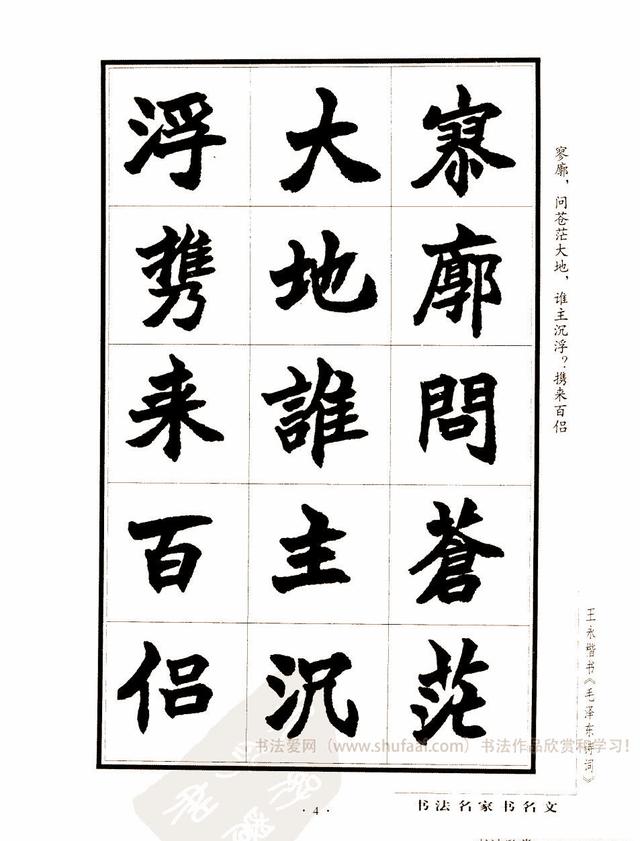 寥廓問蒼茫
大地誰主沉
浮携来百侣
寥廓，问苍茫大地，谁主沉浮？携来百侣
王永楷书《毛泽东诗词》
书法爱网（www.shufaai.com）书法作品欣赏和学习！
·4·
书法名家书名文